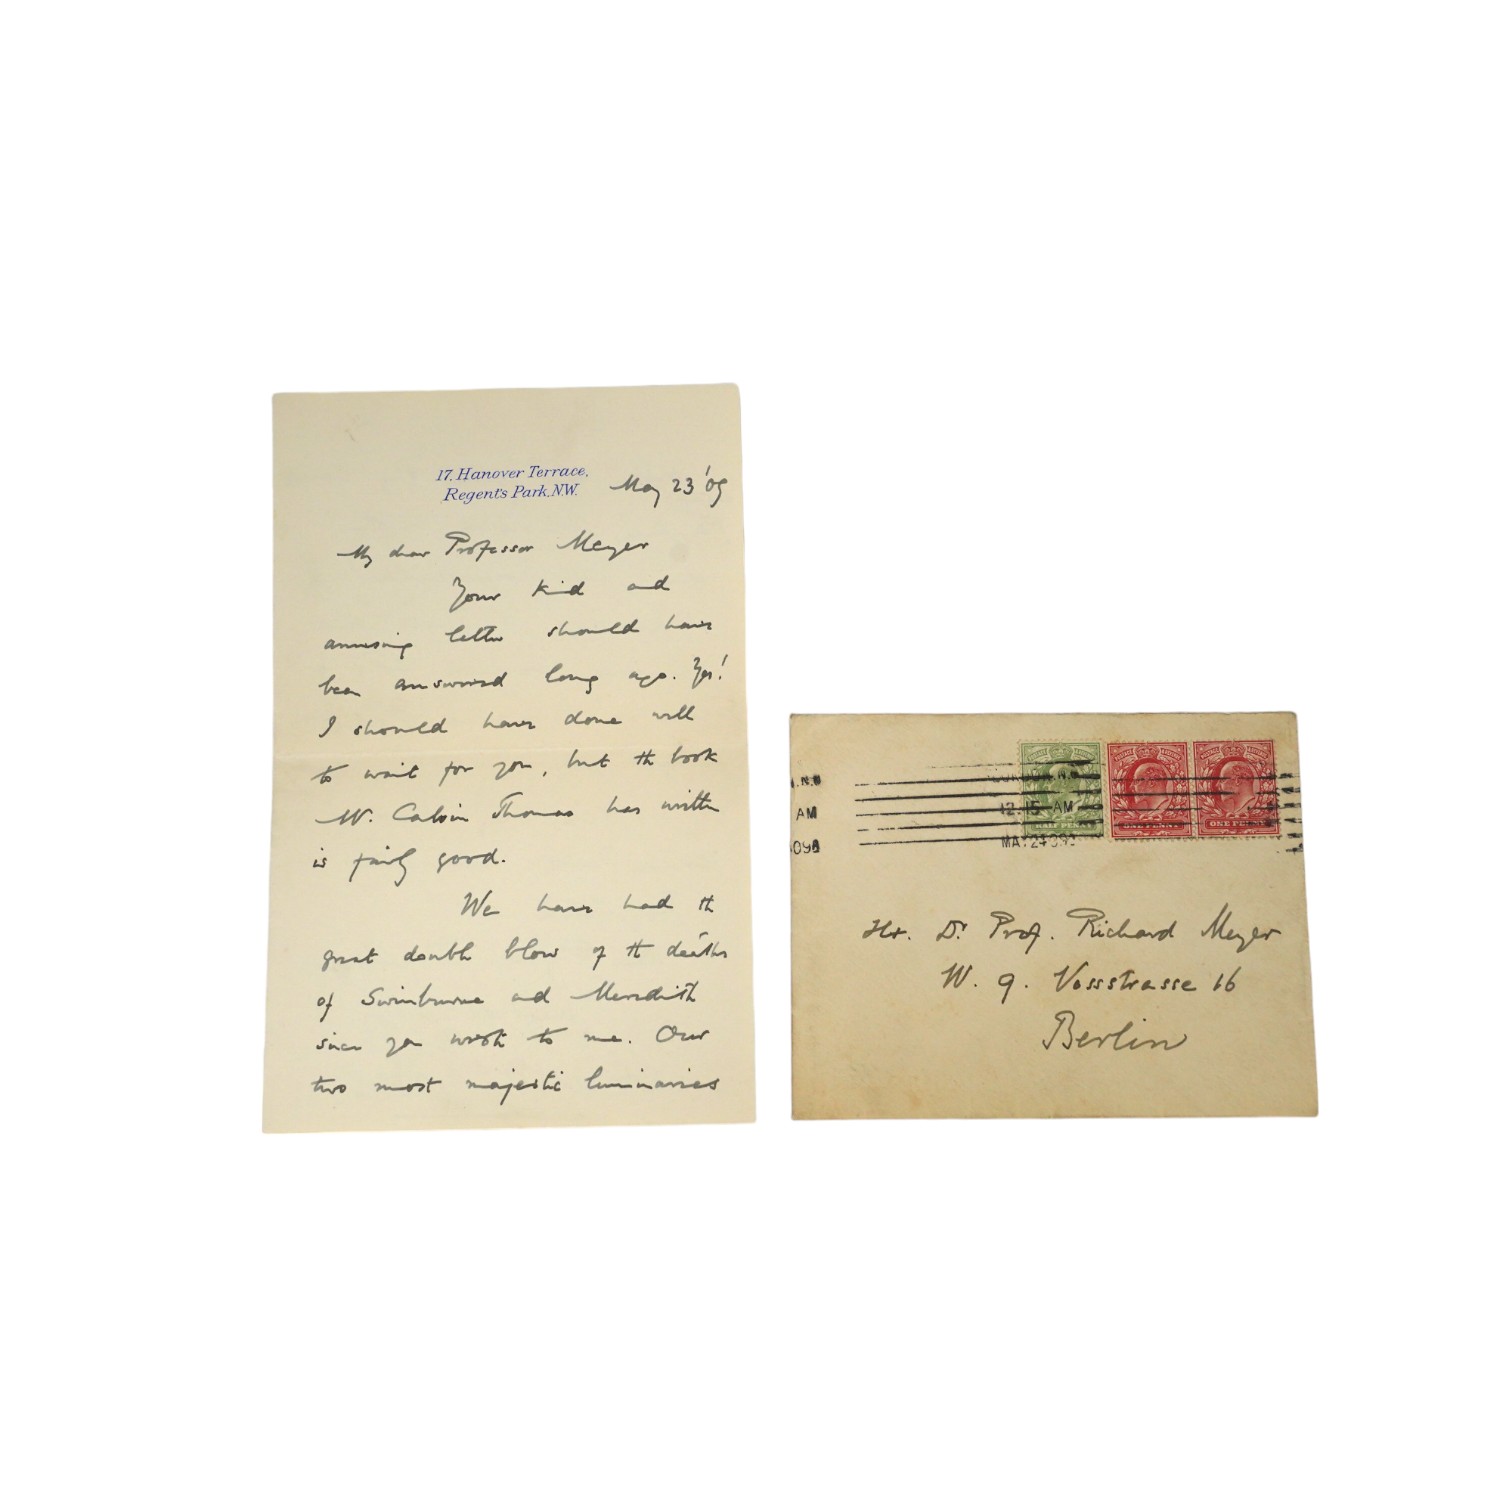 17, Hanover Terrace,
Regent's Park, N.W.
May 23 '09
My dear Professor Meyer
Your kind and
amusing letter should have
been answered long ago. Yes!
I should have done well
to wait for you, but the book
Mr. Calvin Thomas has written
is fairly good.
We have had the
great double blow of the deaths
of Swinburne and Meredith
since you wrote to me. Our
two most majestic luminaries
.N.W
AM
09
LONDON. N.W
12.15 AM
MAY 24 09
HALF PENNY
ONE PENNY
ONE PENNY
Hr. Dr. Prof. Richard Meyer
W. 9. Vossstrasse 16
Berlin